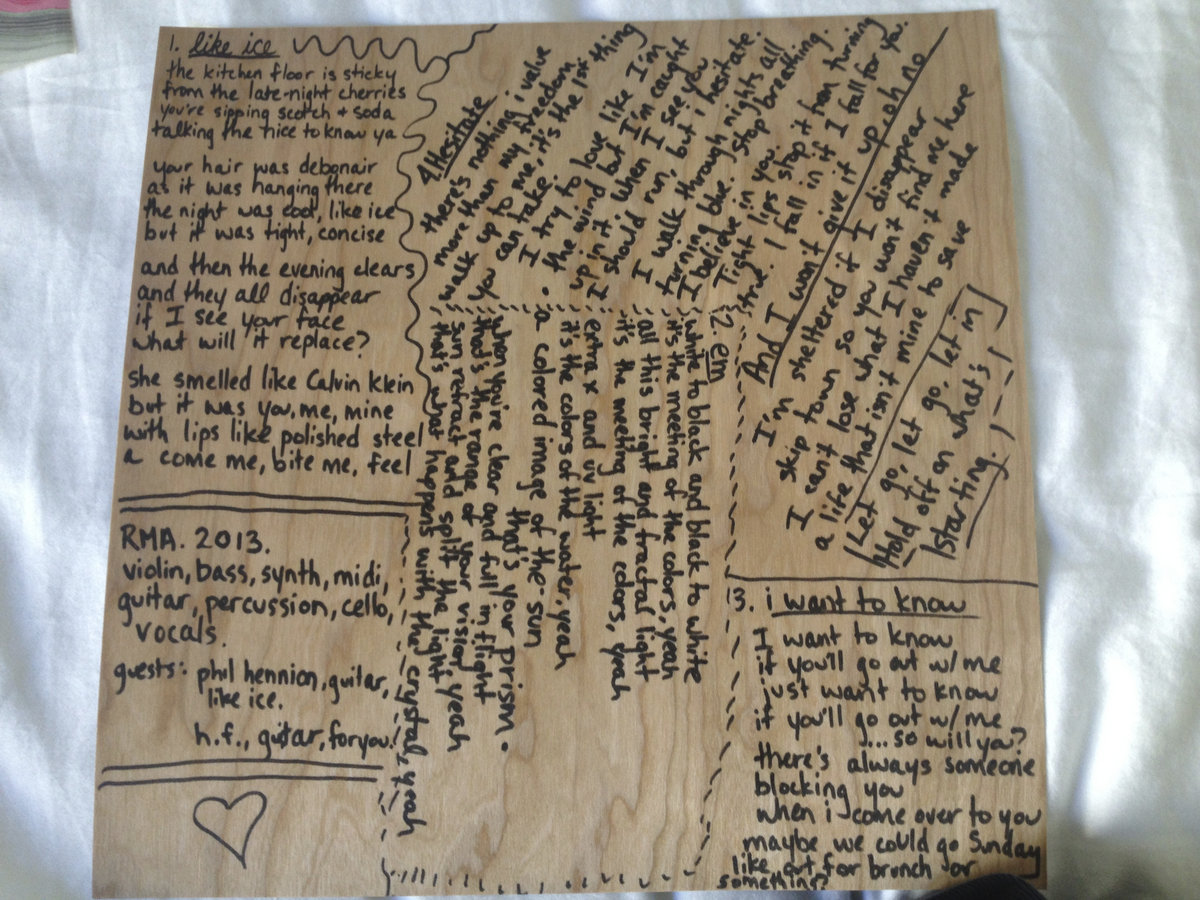 1. like ice
the kitchen floor is sticky
from the late-night cherries
you're sipping scotch + soda
talking the nice to know ya
your hair was debonair
as it was hanging there
the night was cool, like ice
but it was tight, concise
and then the evening clears
and they all disappear
if I see your face
what will it replace?
she smelled like Calvin Klein
but it was you, me, mine
with lips like polished steel
a come me, bite me, feel
RMA. 2013.
violin, bass, synth, midi,
guitar, percussion, cello,
vocals.
guests: phil hennion, guitar,
like ice.
h.f., guitar, for you!
2. em
white to black and black to white
it's the meeting of the colors, yeah
all this bright and fractal light
it's the meeting of the colors, yeah
extra x and uv light
it's the colors of the water, yeah
a colored image of the sun
that's your prism.
when you're clear and full in flight
that's the range of your vision, yeah
sun refract and split the light
that's what happens with the crystal, yeah
13. i want to know
I want to know
if you'll go out w/ me
just want to know
if you'll go out w/ me
...so will you?
there's always someone
blocking you
when i come over to you
maybe we could go Sunday
like out for brunch or
something?
4 Hesitate
there's nothing i value
more than my freedom
walk up to me, it's the 1st thing
you can take.
I try to love like I'm
the wind but I'm caught
up in it when I see you
I should run, but i hesitate.
I walk through nights all
turning blue. Stop breathing.
I believe in you.
Tight lips stop it from turning
true. I fall in if I fall for you
And I won't give it up oh no
I'm sheltered if I disappear
skip town so you won't find me here
I can't lose what I haven't made
a life that isn't mine to save
Let go, let go, let in
Hold off on what's
starting.